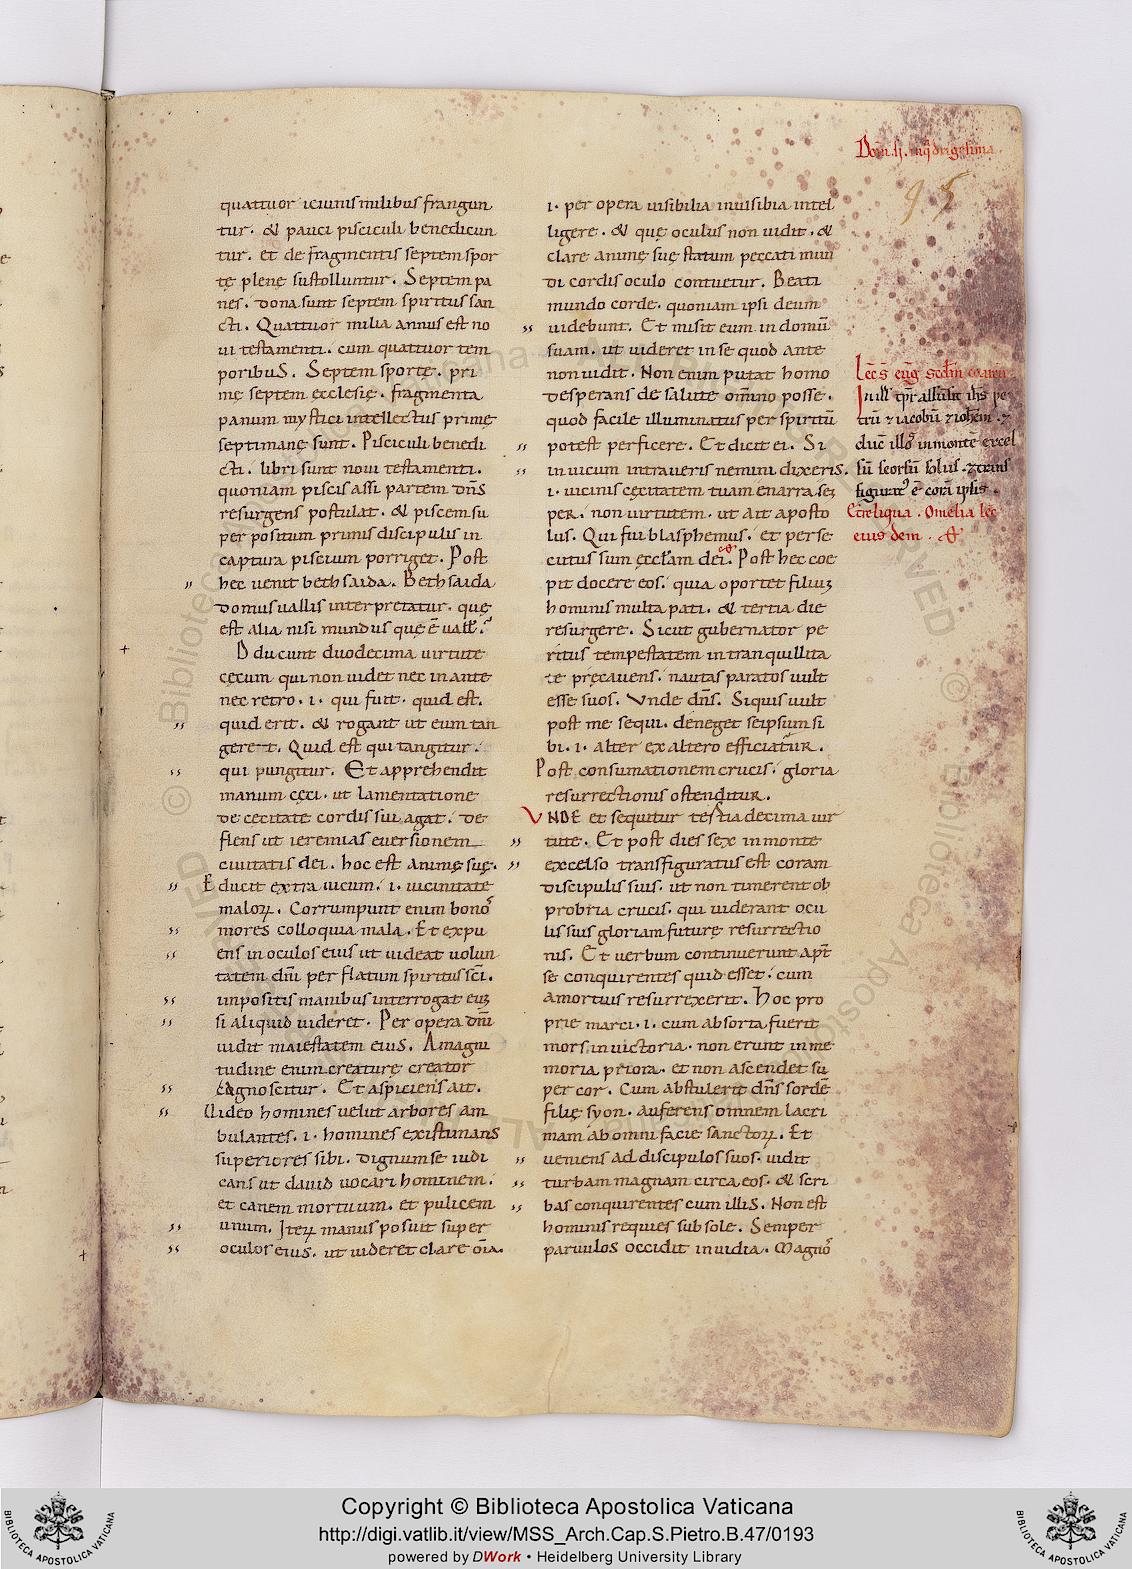 Dom̄. ij. in q̄dragesima.
95
quattuor ieiuniis milibus frangun
tur. & pauci pisciculi benedicun
tur. et de fragmentis septem spor
tę plenę sustolluntur. Septem pa
nes. dona sunt septem spiritus san
cti. Quattuor milia annus est no
ui testamenti. cum quattuor tem
poribus. Septem sporte. pri
mę septem ecclesię. fragmenta
panum mystici intellectus primę
septimanę sunt. Pisciculi benedi
cti. libri sunt noui testamenti.
quoniam piscis assi partem dn̄s
resurgens postulat. & piscem su
per positum prunis discipulis in
captura piscium porriget. Post
hec uenit bethsaida. Bethsaida
domus uallis interpretatur. quę
est alia nisi mundus quę ē uall̄.
Dducunt duodecima uirtute
cęcum qui non uidet nec in ante
nec retro. i. qui fuit. quid est.
quid erit. & rogant ut eum tan
geret. Quid est qui tangitur.
qui pungitur. Et apprehendit
manum cęci. ut lamentatione
de cecitate cordis sui agat. de
flens ut ieremias euersionem
ciuitatis dei. hoc est animę suę.
Educit extra uicum. i. uicinitate
maloꝝ. Corrumpunt enim bonoˢ
mores colloquia mala. Et expu
ens in oculos eius ut uideat uolun
tatem dn̄i per flatum spiritus sc̄i.
inpositis manibus interrogat eūꝫ
si aliquid uideret. Per opera dn̄i
uidit maiestatem eius. A magni
tudine enim creaturę creator
cognoscitur. Et aspiciens ait.
Uideo homines uelut arbores am
bulantes. i. homines existimans
superiores sibi. dignum se iudi
cans ut dauid uocari hominem.
et canem mortuum. et pulicem
unum. Iteꝝ manus posuit super
oculos eius. ut uideret clare om̄ia.
i. per opera uisibilia inuisibia intel
ligere. & quę oculus non uidit. &
clare animę suę statum peccati mun
di cordis oculo contuetur. Beati
mundo corde. quoniam ipsi deum
uidebunt. Et misit eum in domū
suam. ut uideret in se quod ante
non uidit. Non enim putat homo
desperans de salute om̄ino posse.
quod facile illuminatus per spiritū
potest perficere. Et dicit ei. Si
in uicum intraueris nemini dixeris.
i. uicinis cęcitatem tuam enarra sēꝫ
per. non uirtutem. ut ait aposto
lus. Qui fui blasphemus. et perse
cutus sum ęccl̄am dei. Post hec coe
pit docere eos. quia oportet filiuꝫ
hominis multa pati. & tertia die
resurgere. Sicut gubernator pe
ritus tempestatem in tranquillita
te precauens. nautas paratos uult
esse suos. Vnde dn̄s. Siquis uult
post me sequi. deneget seipsum si
bi. i. alter ex altero efficiatur.
Post consumationem crucis. gloria
resurrectionis ostenditur.
VNDE et sequitur tertia decima uir
tute. Et post dies sex in monte
excelso transfiguratus est coram
discipulis suis. ut non timerent ob
probria crucis. qui uiderant ocu
lis suis gloriam futurę resurrectio
nis. Et uerbum continuerunt apt̄
se conquirentes quid esset. cum
a mortuis resurrexerit. Hoc pro
prie marci. i. cum absorta fuerit
mors in uictoria. non erunt in me
moria priora. et non ascendet su
per cor. Cum abstulerit dn̄s sordē
filię syon. auferens omnem lacri
mam ab omni facie sanctoꝝ. Et
ueniens ad discipulos suos. uidit
turbam magnam circa eos. & scri
bas conquirentes cum illis. Non est
hominis requies sub sole. Semper
paruulos occidit inuidia. Magnoˢ
Lec̄s eūg sc̄dm̄
In ill̄ tp̄r assūsit ih̄s pe
trū ⁊ iacobū ⁊ ioh̄em. ⁊
duc̄ illoˢ in montē excel
sū seorsū solus. ⁊ trans
figuratˀ ē corā ipsis.
Et reliqua. Omelia lec
eiusdem. &
Copyright © Biblioteca Apostolica Vaticana
http://digi.vatlib.it/view/MSS_Arch.Cap.S.Pietro.B.47/0193
powered by DWork • Heidelberg University Library
BIBLIOTECA APOSTOLICA VATICANA
BIBLIOTECA APOSTOLICA VATICANA